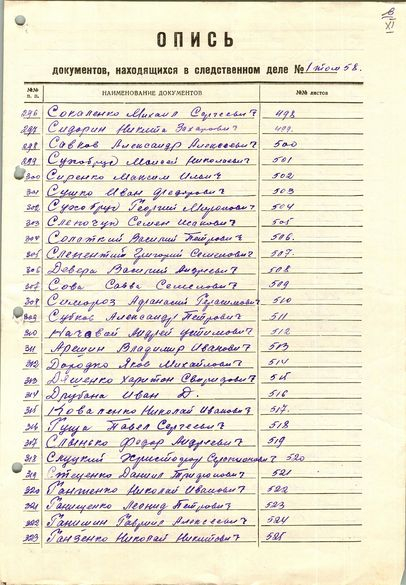 ОПИСЬ
документов, находящихся в следственном деле № 1 том 58.
№№ п. п. НАИМЕНОВАНИЕ ДОКУМЕНТОВ №№ листов
296 Сокаленко Михаил Сергеевич 498
297 Сидорин Никита Захарович 499
298 Савков Александр Алексеевич 500
299 Николаевич 501
300 Сиренко Максим Ильич 502
301 Сушко Иван Федорович 503
302 Георгий Миронович 504
303 Слепчук Семен Исакович 505
304 Василий Петрович 506.
305 Григорий Семенович 507.
306 Девера Василий Андреевич 508
307 Сова Савва Семенович 509
308 Симороз Афанасий Герасимович 510
309 Субков Александр Петрович 511
310 Андрей 512
311 Арешин Владимир Иванович 513
312 Дородко Яков Михайлович 514
313 Дяшенко Харитон 515
314 Друбана Иван Д. 516
315 Коваленко Николай Иванович 517.
316 Гуща Павел Сергеевич 518
317 Слынько Федор Андреевич 519
318 Слуцкий Христофор 520
319 Стеценко Даниил Трифонович 521
320 Николай Иванович 522
321 Ганищенко Леонид Петрович 523
322 Ганишин Гавриил Алексеевич 524
323 Ганзенко Николай Никитович 525